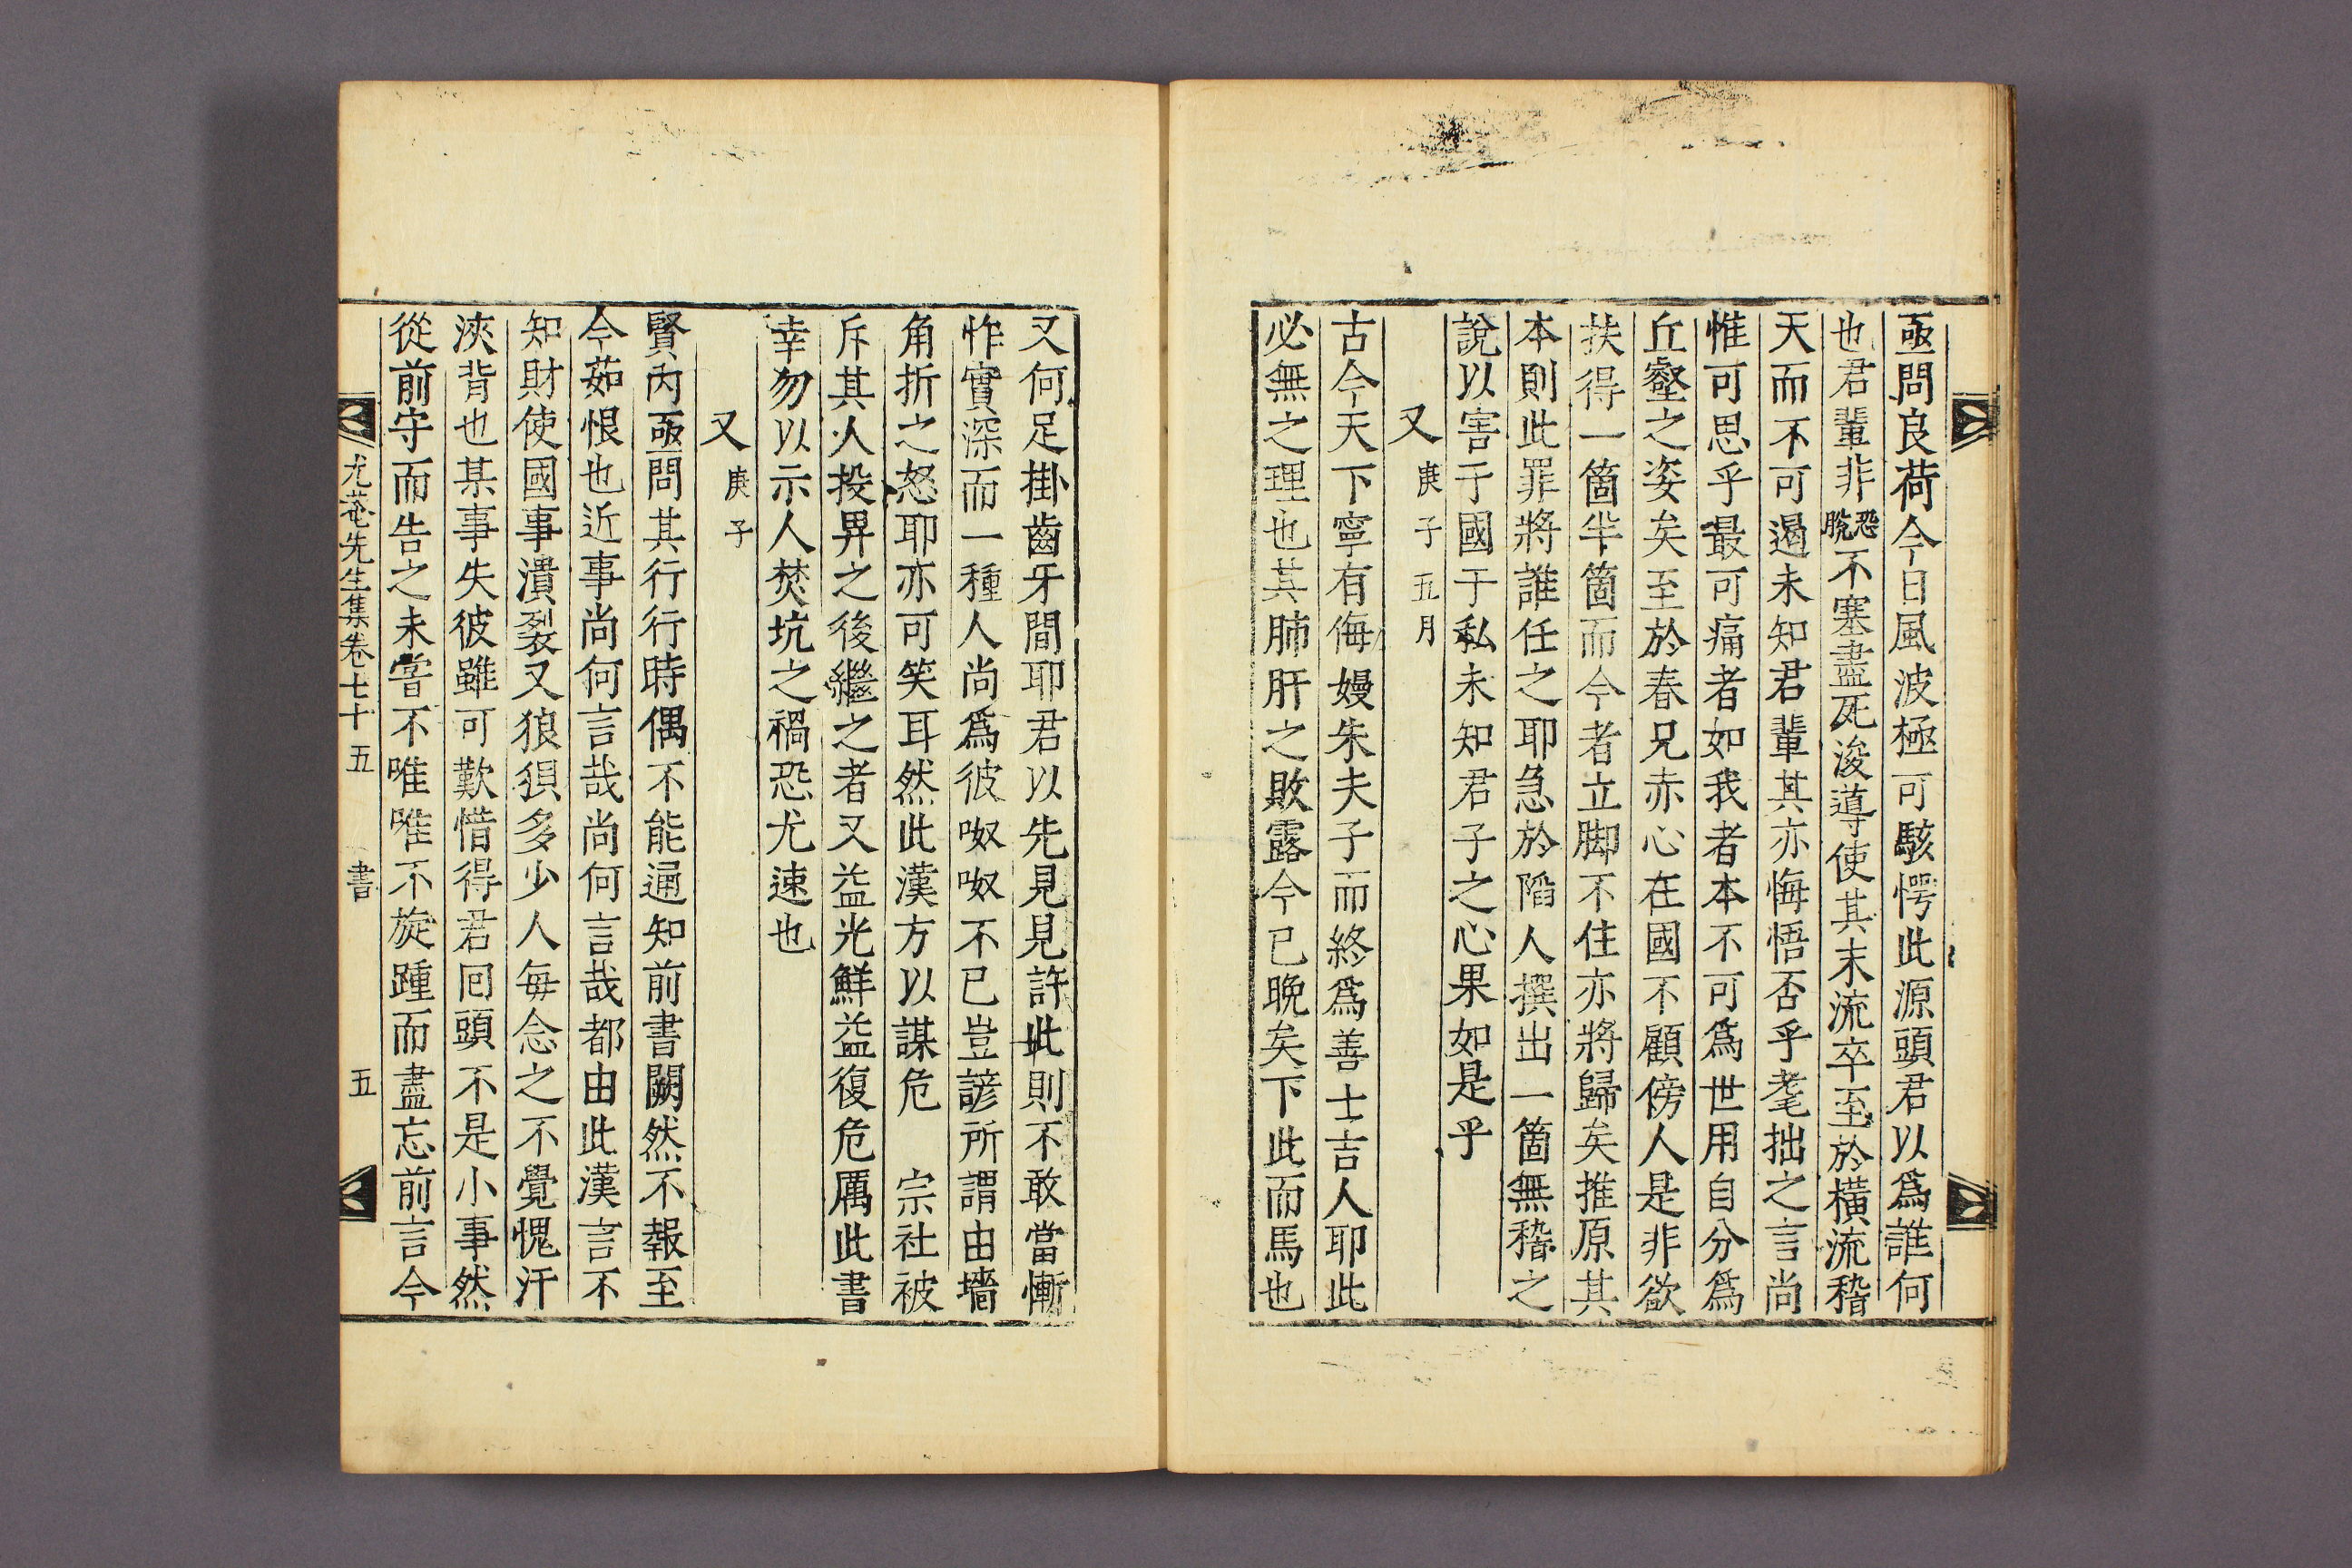 亟問良荷今日風波極可駭愕此源頭君以爲誰何
也君輩非恐脫不塞盡瓦浚導使其末流卒至於橫流稽
天而不可遏未知君輩其亦悔悟否乎耄拙之言尚
惟可思乎最可痛者如我者本不可爲世用自分爲
丘壑之姿矣至於春兄赤心在國不顧傍人是非欲
扶得一箇半箇而今者立脚不住亦將歸矣推原其
本則此罪將誰任之耶急於陷人撰出一箇無稽之
說以害于國于私未知君子之心果如是乎
又庚子五月
古今天下寧有侮嫚朱夫子而終爲善士吉人耶此
必無之理也其肺肝之敗露今已晚矣下此而馬也
又何足掛齒牙間耶君以先見見許此則不敢當慚
怍實深而一種人尚爲彼呶呶不已豈諺所謂由墻
角折之怒耶亦可笑耳然此漢方以謀危 宗社被
斥其人投畀之後繼之者又益光鮮益復危厲此書
幸勿以示人焚坑之禍恐尤速也
又庚子
賢內亟問其行行時偶不能通知前書闕然不報至
今茹恨也近事尚何言哉尚何言哉都由此漢言不
知財使國事潰裂又狼狽多少人每念之不覺愧汗
浹背也某事失彼雖可歎惜得君回頭不是小事然
從前守而告之未嘗不唯唯不旋踵而盡忘前言今
尤菴先生集卷七十五 書 五